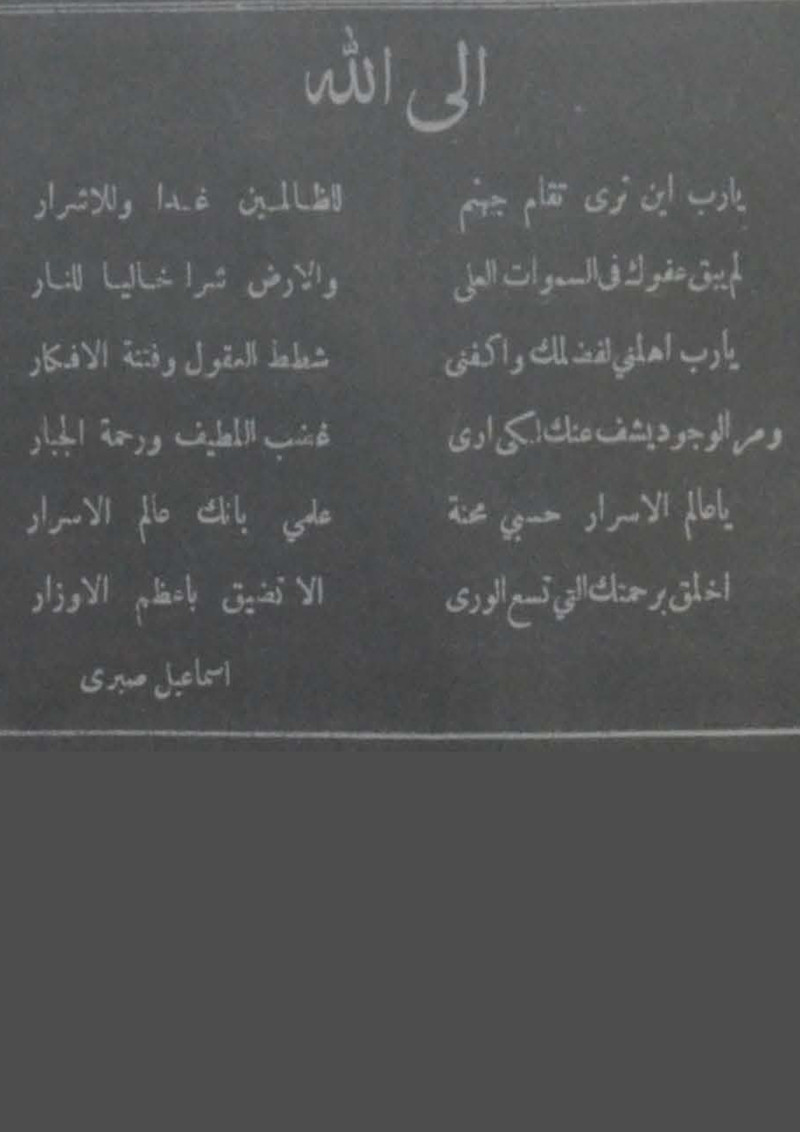 الى الله
يارب اين ترى تقام جهنم للظالمين غدا وللاشرار
لم يبق عفوك فى السموات العلى والارض شبرا خاليا للنار
يارب اهلني لفضلك واكفنى شطط العقول وفتنة الافكار
ومر الوجود يشف عنك لكى ارى غضب اللطيف ورحمة الجبار
ياعالم الاسرار حسبي محنة علمي بانك عالم الاسرار
اخلق برحمتك التي تسع الورى الا تضيق باعظم الاوزار
اسماعيل صبرى